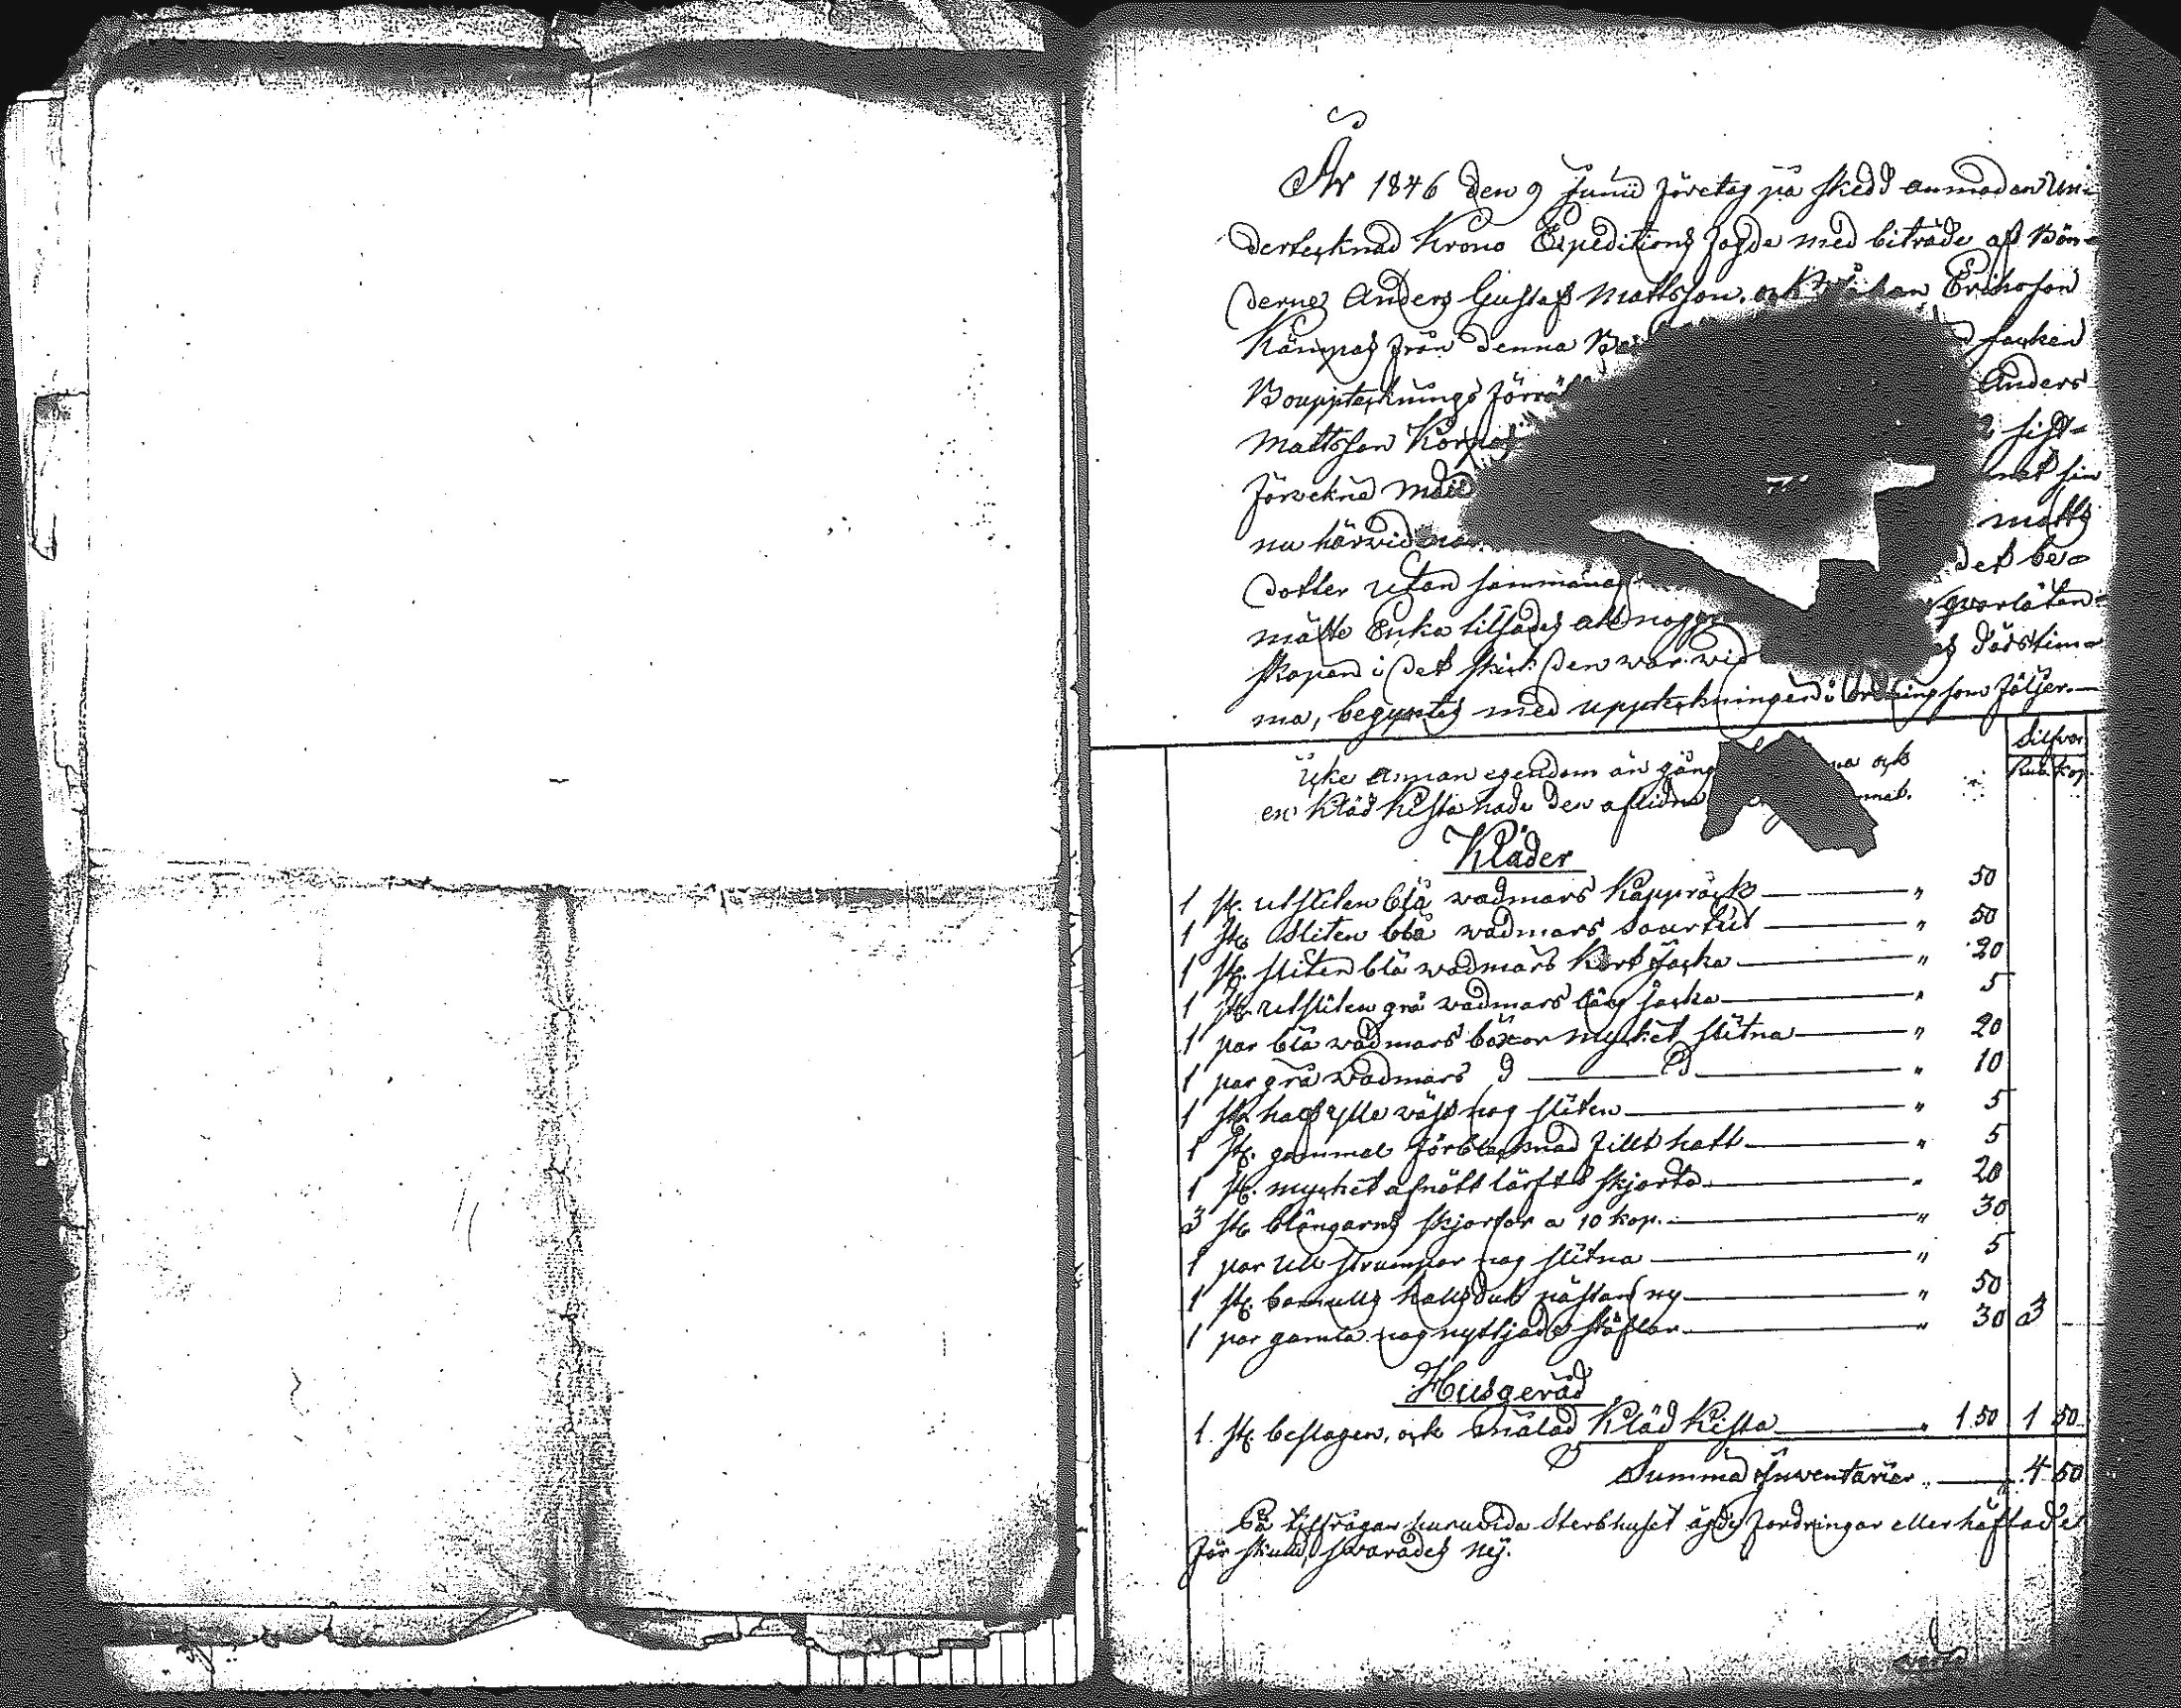 År 1846 den 9 Junii företogs på skedd anmodan un-
dertecknad Krono Expeditions fogde med biträde af Bön-
dernes Anders Gustaf Mattsson och Johan Eriksson
Kämpas från denna
Bouppteckningsförrä Anders
Mattsson Korpas sist-
förvekne
nu härvid Matts
dotter utan det be-
mälte Enka tillsades att noga qvarlåten-
skapen i det skick den war vid dödstim-
ma, begyntes med uppteckningen i ordning som följer.
Silfver
Rub. Kop.
Icke annan egendom än gång och
en Kläd Kista hade den aflidne
Kläder
1 st. utsliten blå wadmars Kapprock — " 50
1 st. sliten blå wadmars Sourtud — " 50
1 st. sliten blå wadmars Kort Jacka — " 20
1 st. utsliten grå wadmars lång Jacka — " 5
1 par blå wadmars böxor mycket slitna — " 20
1 par grå wadmars d — d — " 10
1 st. half ylle wäst nog sliten — " 5
1 st. gammal förblecknad fillt hatt — " 5
1 st. mycket afnött lärfts skjorta — " 20
3 st. blångarns skjortor a 10 kop. — " 30
1 par ull strumpor nog slitna — " 5
1 st. bomulls halsduk nästan ny — " 50
1 par gamla nog nyttjade stöflar — " 30 3 —
Husgeråd
1. st. beslagen, och målad Kläd Kista — " 1.50 1 50
Summa Inventarier — 4 50
På tillfrågan huruvida Sterbhuset ägde fordringar eller häftade
för skuld, svarades nej.